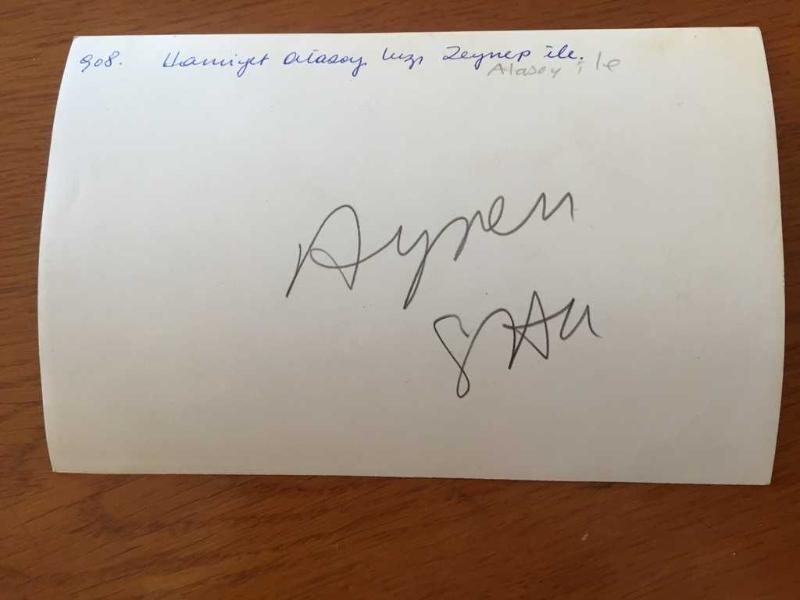 908. Hamiyet Atasoy kızı Zeynep ile.
Atasoy ile
Ayşen